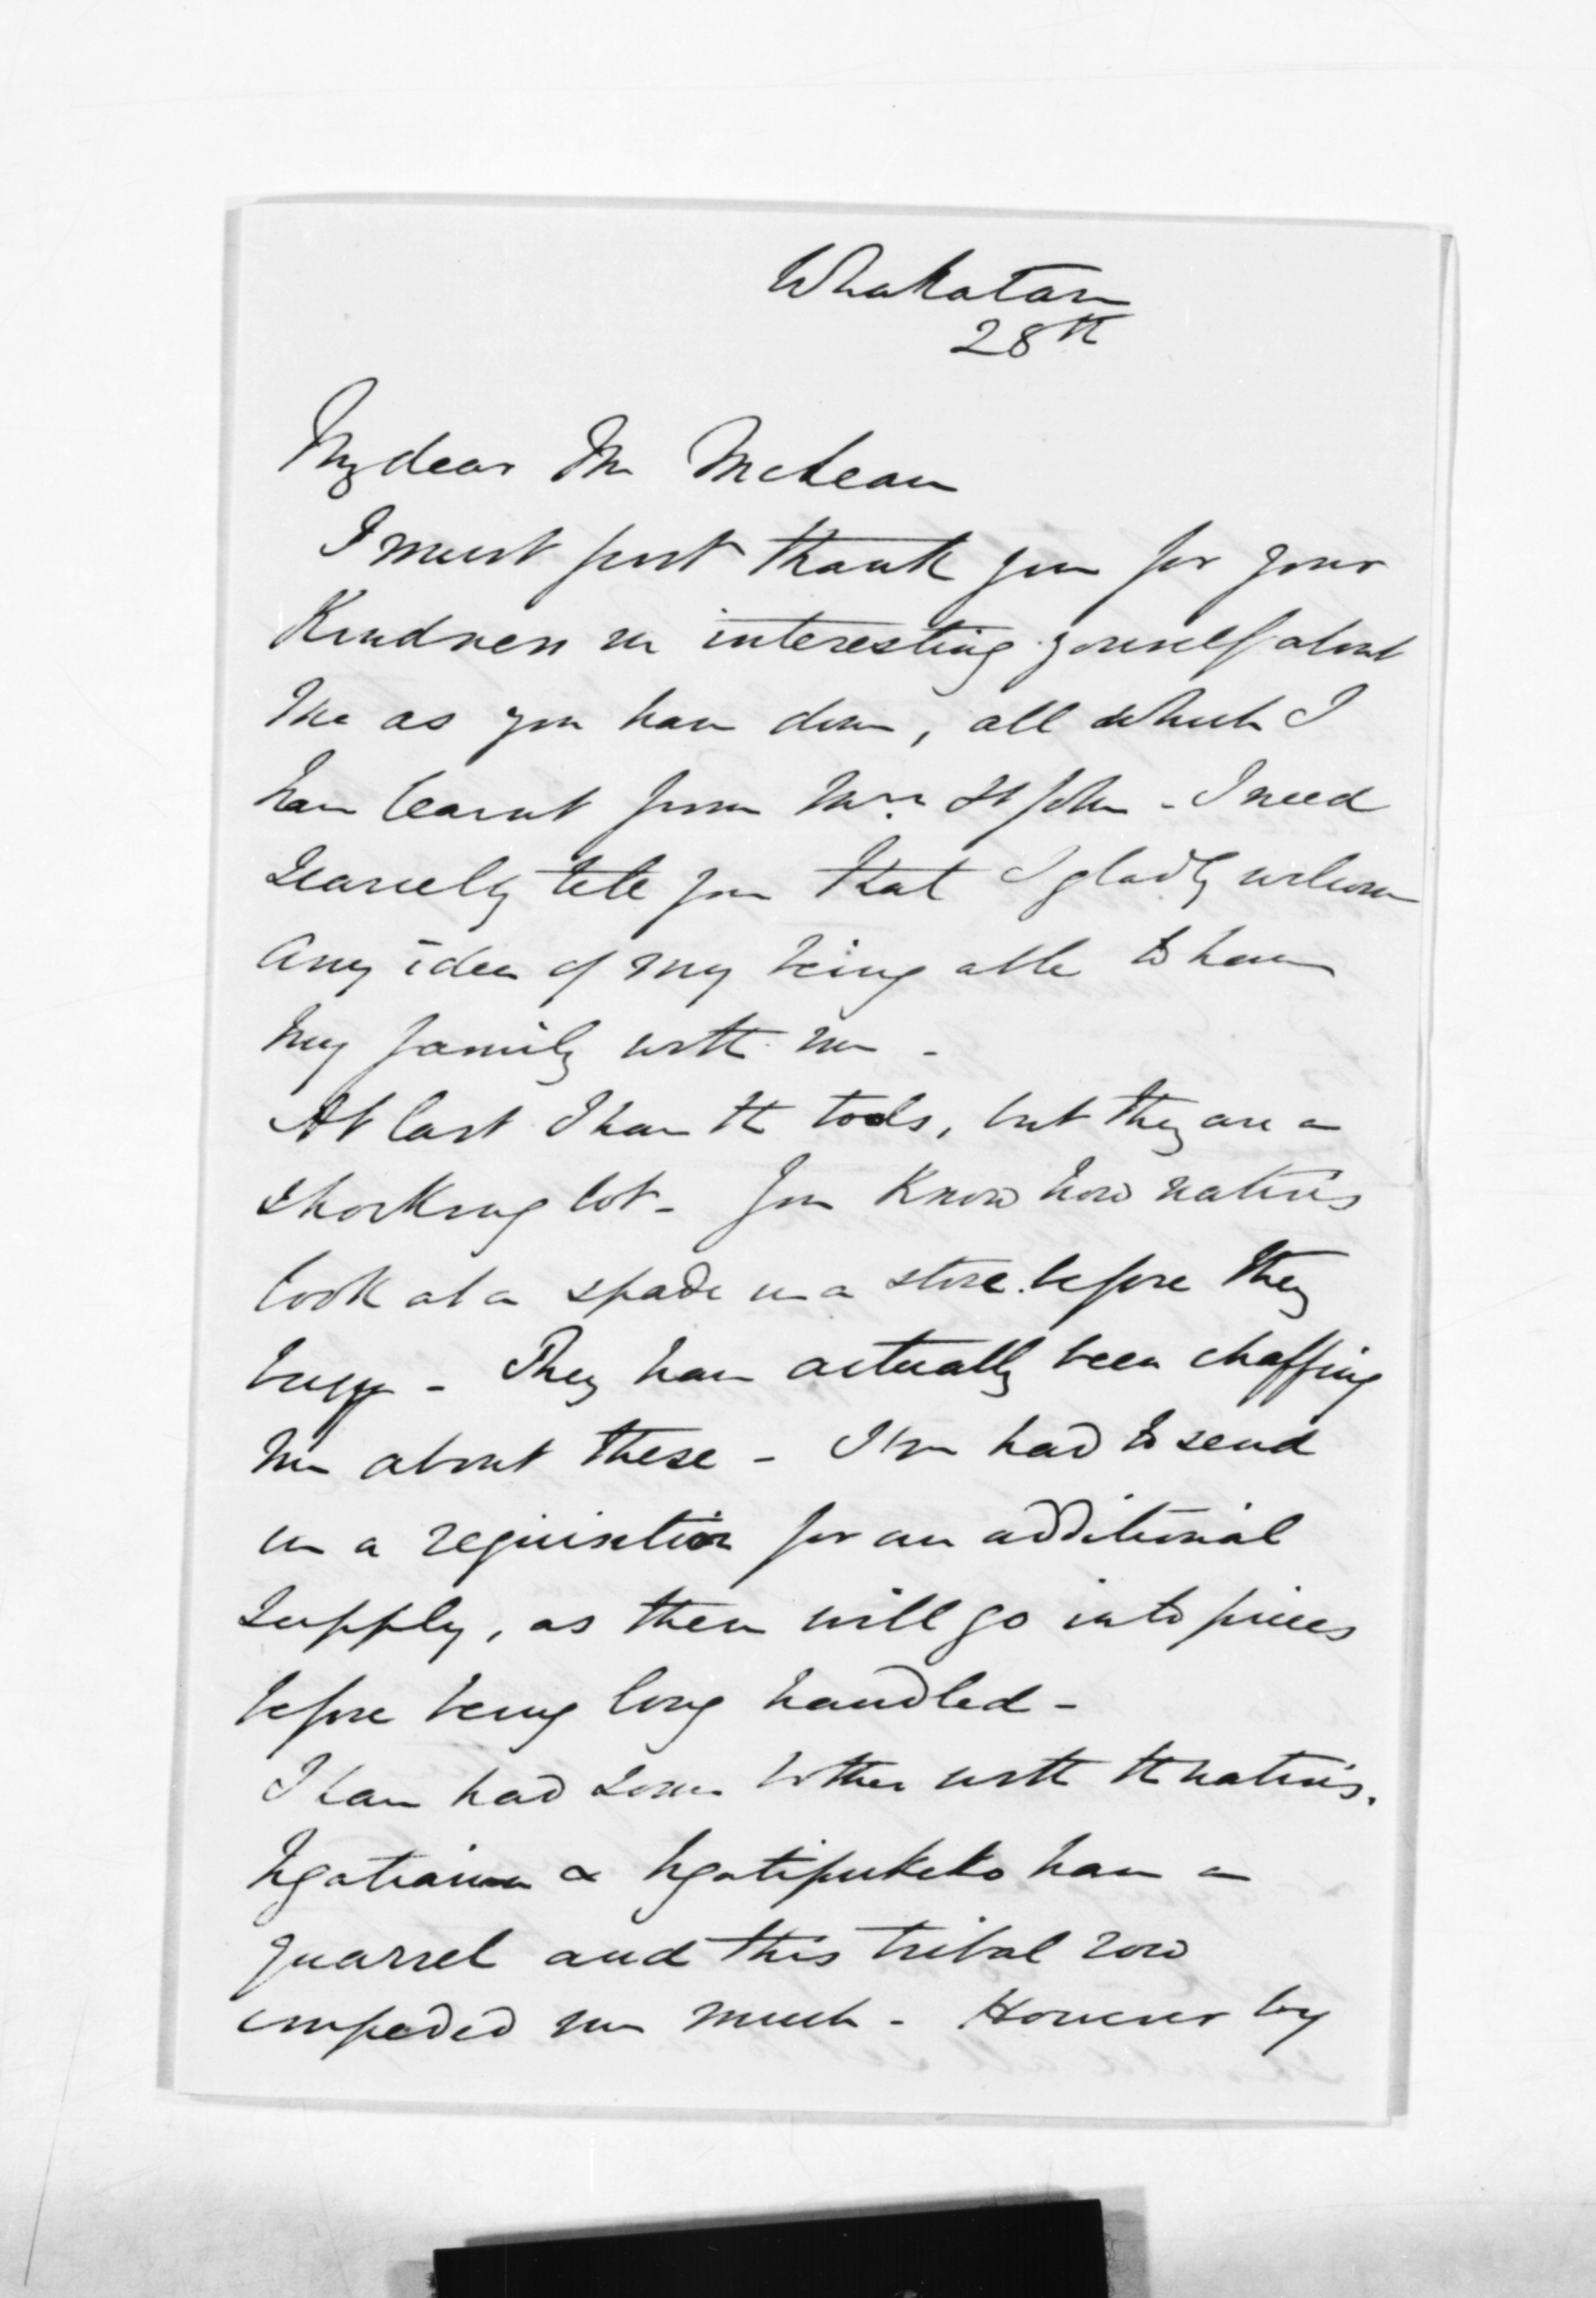 Whakatane
28th
My dear Mr McLean
I must first thank you for your
Kindness in interesting yourself about
me as you have done, all which I
have learnt from Mrs. St John - I need
scarcely tell you that I gladly welcome
any idea of my being able to have
my family with me -
At last I have the tools, but they are a
shocking lot - You Know how natives
look at a spade in a store before they
buy - They have actually been chaffing
me about these - I have had to send
in a requisition for an additional
supply, as these will go into pieces
before being long handled -
I have had some bother with the natives.
Ngatiawa & Ngatipukeko have a
quarrel and this tribal row
impeded me much - However by